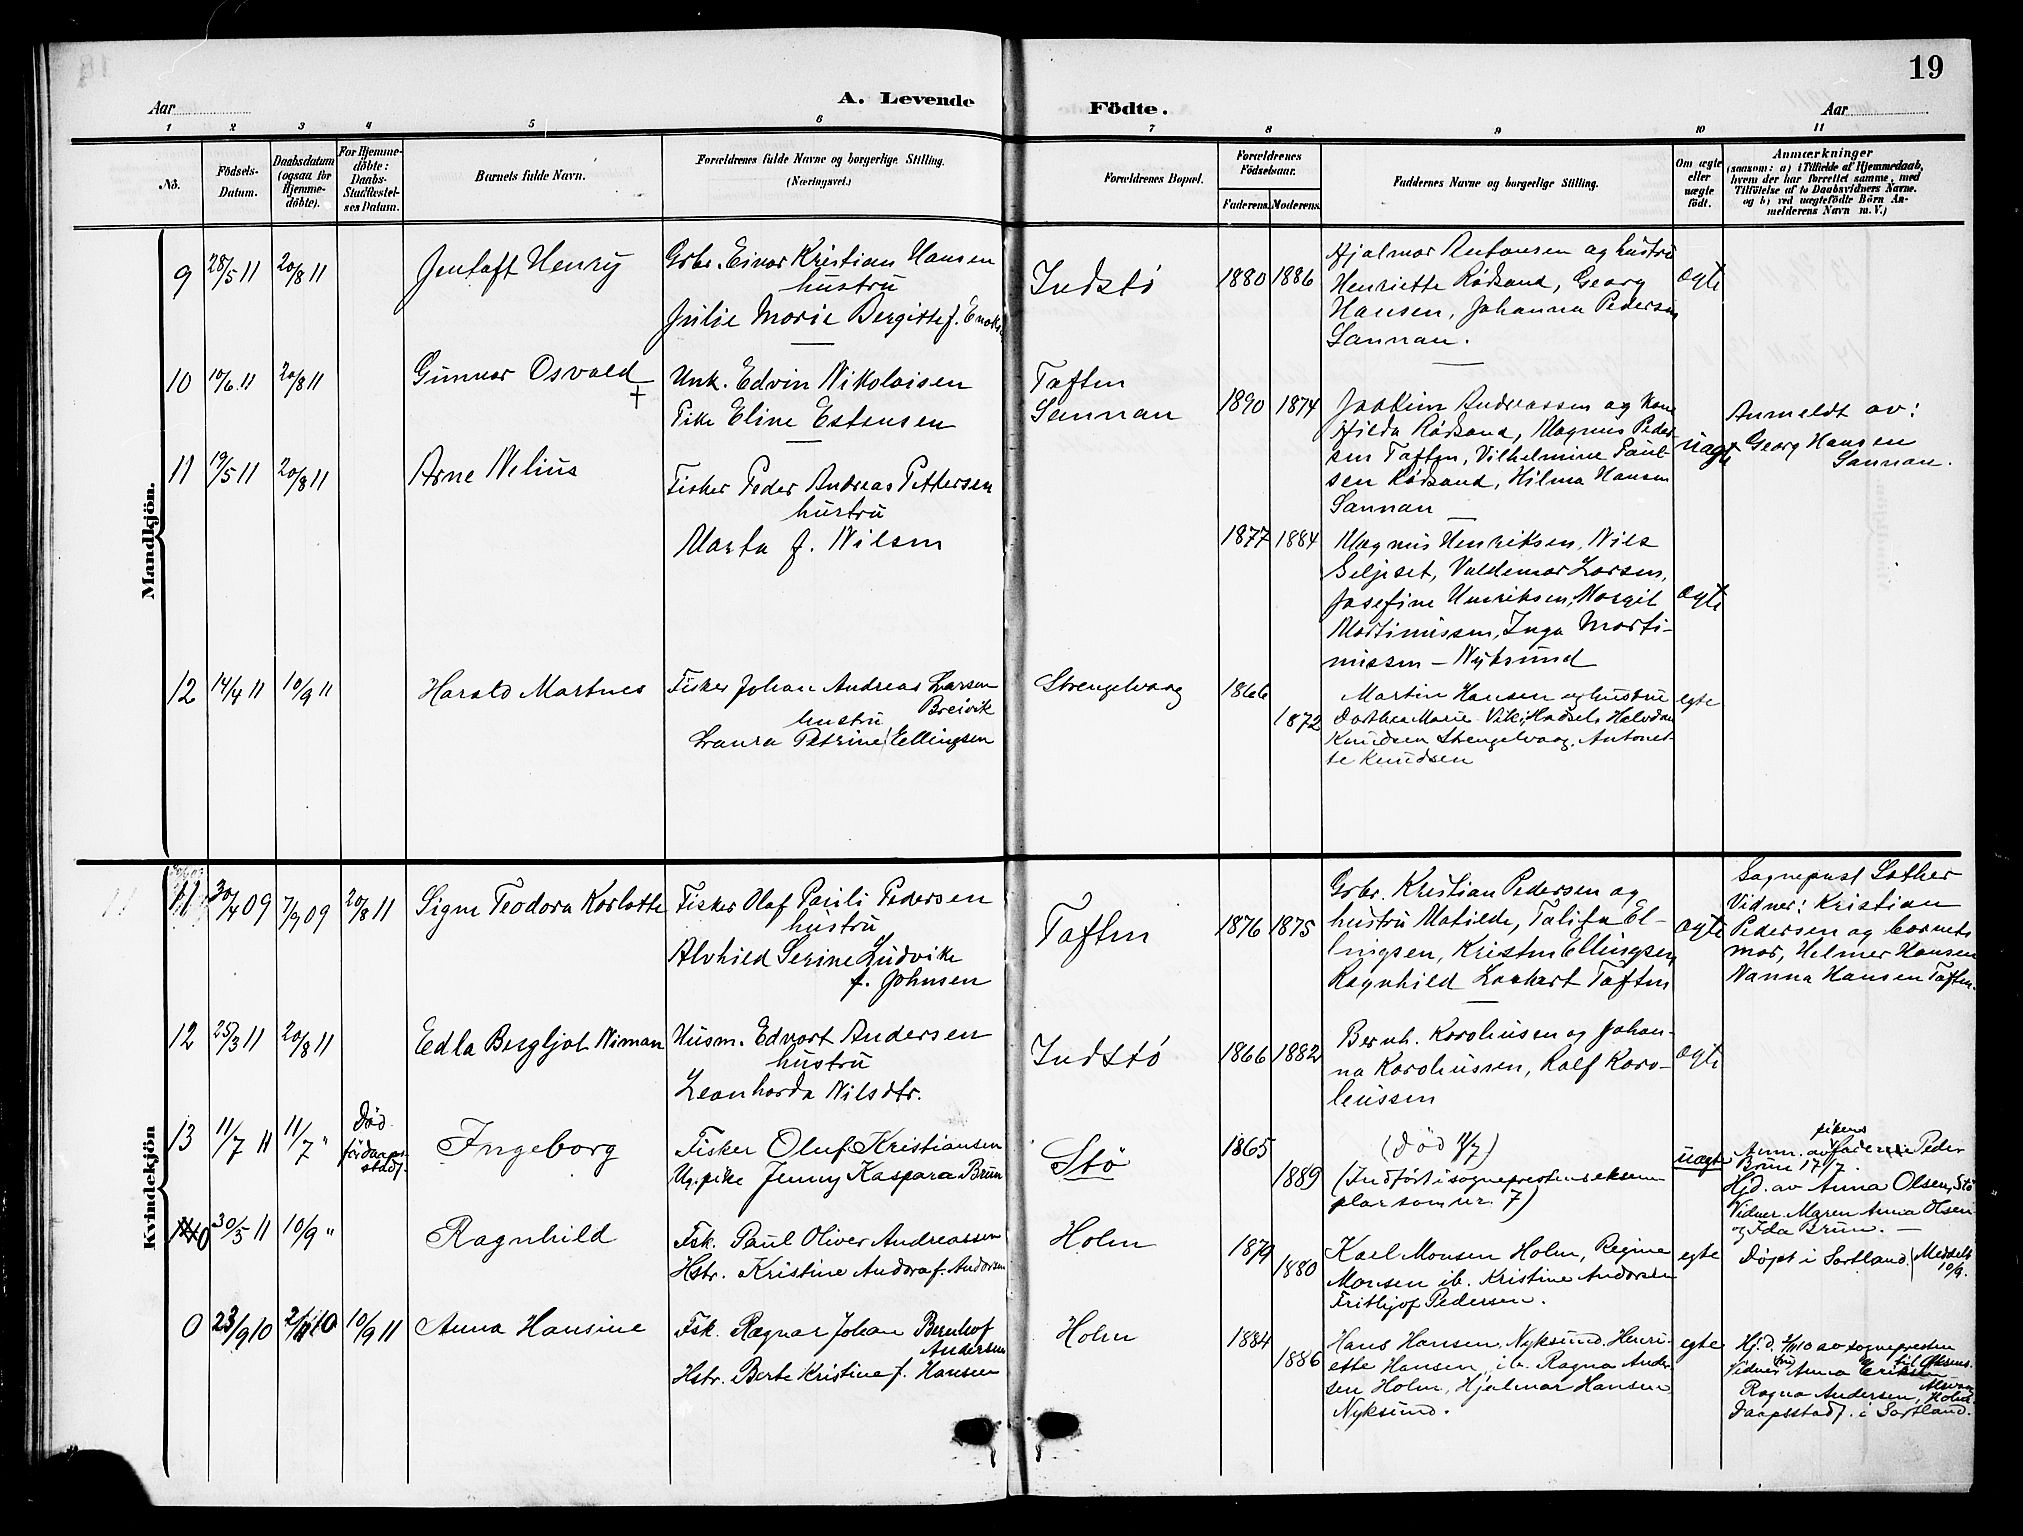 19
A. Levende Födte.
Aar
Aar
1 2 3 4 5 6 7 8 9 10 11
No.
Födsels-Datum.
Daabsdatum (ogsaa for Hjemme-döbte).
For Hjemme-döbte: Daabs-Stadfæstel-ses Datum.
Barnets fulde Navn.
Forældrenes fulde Navne og borgerlige Stilling.
(Næringsvei.)
Forældrenes Bopæl.
Forældrenes Födselsaar.
Faderens. Moderens.
Faddernes Navne og borgerlige Stilling.
Om ægte eller uægte födt.
Anmærkninger
(saasom: a) i Tilfælde af Hjemmedaab,
hvem der har forrettet samme, med
Tilföielse af to Daabsvidners Navne.
og b) ved uægtefödte Börn An-
melderens Navn m. V.)
Mandkjön.
9 28/5 11 20/8 11 Jentoft Henry
Grbr. Einar Kristian Hansen
hustru
Julie Marie Bergitte f. Enoks
Indstø 1880 1886
Hjalmar Antonsen og hustru
Henriette Rødsand, Georg
Hansen, Johanna Pedersen
Sannan.
ægte
10 10/6 11 20/8 11 Gunnar Osvald †
Unk. Edvin Nikolaisen
Pike Eline Estensen
Toften
Sannan
1890 1874
Joakim Andreassen og kone
Hilda Rødsand, Magnus Peder-
sen Toften, Vilhelmine Paul-
sen Rødsand, Hilma Hansen
Sannan
uægte
Anmeldt av:
Georg Hansen
Sannan.
11 19/5 11 20/8 11 Arne Nelius
Fisker Peder Andreas Pettersen
hustru
Marta f. Nilsen
1877 1884
Magnus Henriksen, Nils
Seljeset, Valdemar Larsen,
Josefine Henriksen, Margit
Martinussen, Inga Marti-
nussen – Nyksund
ægte
12 14/4 11 10/9 11 Harald Martnes
Fisker Johan Andreas Larsen
Breivik
hustru
Laura Petrine Ellingsen
Strengelvaag 1866
1872
Martin Hansen og hustru
Dorthea Marie Vik i Hadsel, Halvdan
Knudsen Strengelvaag, Antonet-
te Knudsen
egte
Kvindekjön
11 30/4 09 7/9 09 20/8 11 Signe Teodora Karlotte
Fisker Olaf Pauli Pedersen
hustru
Alvhild Serine Ludvike
f. Johnsen
Toften 1876 1875
Grbr. Kristian Pedersen og
hustru Matilde, Talifa El-
lingsen, Kristen Ellingsen,
Ragnhild Lockert Toften
ægte
Sogneprest Sother
Vidner: Kristian
Pedersen og barnets
mor, Helmer Hansen
Nanna Hansen Toften.
12 25/3 11 20/8 11 Edla Bergljot Niman
Husm. Edvart Andersen
hustru
Leonharda Nilsdtr.
Indstø 1866 1882
Bernh. Karoliussen og Johan-
na Karoliussen, Ralf Karo-
leussen
ægte
13 11/7 11 11/7 "
Død
før daaps-
stadf.
Ingeborg
Fisker Oluf Kristiansen
Ug. pike Jenny Kaspara Brun
Stø 1865
1889
(Død 11/7)
(Indført i sogneprestens eksem-
plar som nr. 7)
uægte
Anm. av pikens fader Peder
Brun 17/7.
Hjd. av Anna Olsen, Stø
Vidner Maren Anna Olsen
og Ida Brun. –
0 30/5 11 10/9 " Ragnhild
Fsk. Paul Oliver Andreassen
Hstr. Kristine Andora f. Andersen
Holm 1879
1880
Karl Monsen Holm, Regine
Monsen ib. Kristine Andersen
Fritjof Pedersen.
egte
Døpt i Sortland. (Meddelt
10/9.
0 23/9 10 2/11 10 10/9 11 Anna Hansine
Fsk. Ragnar Johan Bernhof
Andersen
Hstr. Berte Kristine f. Hansen
Holm 1884
1886
Hans Hansen, Nyksund. Henri-
ette Hansen, ib. Ragna Ander-
sen Holm, Hjalmar Hansen
Nyksund.
egte
Hj.d. 2/11 10 av sognepresten
til Øksnes.
Vidner fru Anna Eriksen
Ragna Andersen, Holm
Daapsstadf. i Sortland.